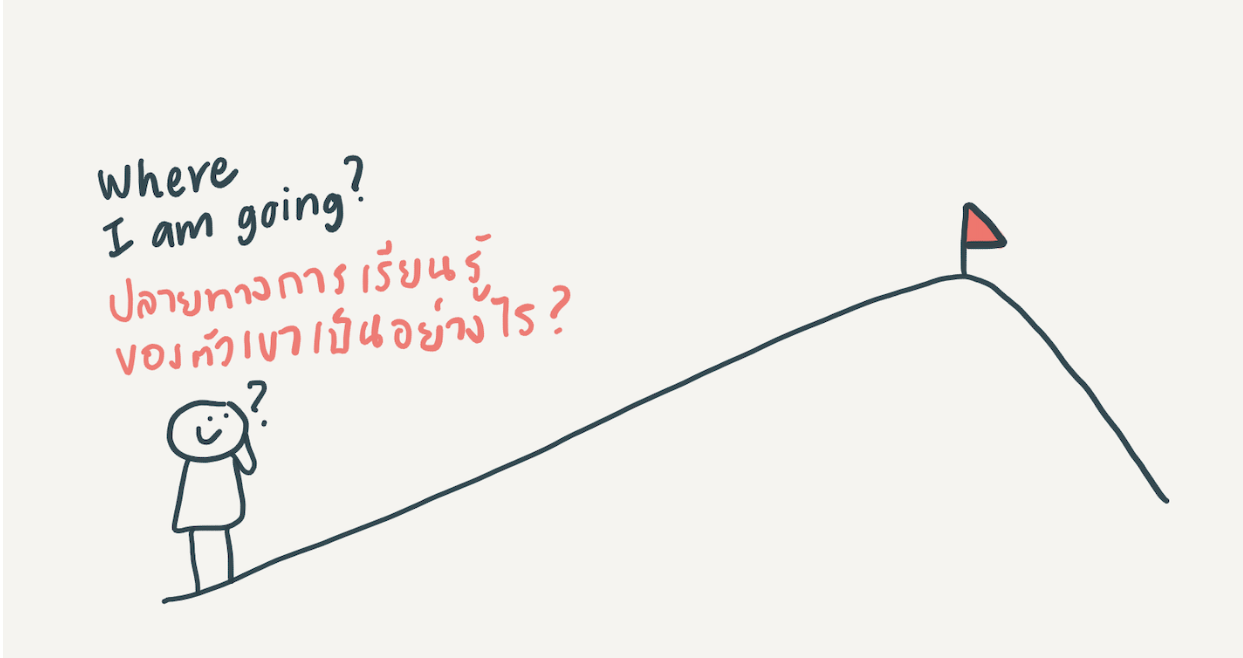 Where
I am going?
ปลายทางการเรียนรู้
ของตัวเขาเป็นอย่างไร?
?